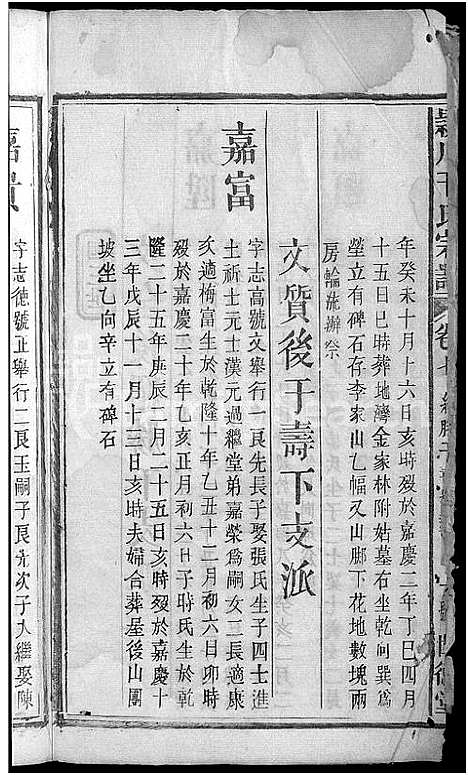 年癸未十月十六日亥時歿於嘉慶二年丁巳四月
十五日巳時葬地灣金家林附姑墓右坐乾向巽為
塋立有碑石存李家山乙幅又山脚下花地數塊兩
房輪流辦祭
文貨後于壽下支派
嘉富
字志高號文舉行一良先長子娶張氏生子四士進
士祈士元士漢元過繼堂弟嘉榮為嗣女二長適康
次適梅富生於乾隆十年乙丑十二月初六日卯時
歿於嘉慶二十年乙亥正月初六日子時氏生於乾
隆二十五年庚辰二月二十五日亥時歿於嘉慶十
三年戊辰十一月十三日亥時夫婦合葬屋後山園
坡坐乙向辛立有碑石
嘉貴
字志德號正舉行二良玉嗣子良先次子入繼娶陳
氏宗譜
卷七